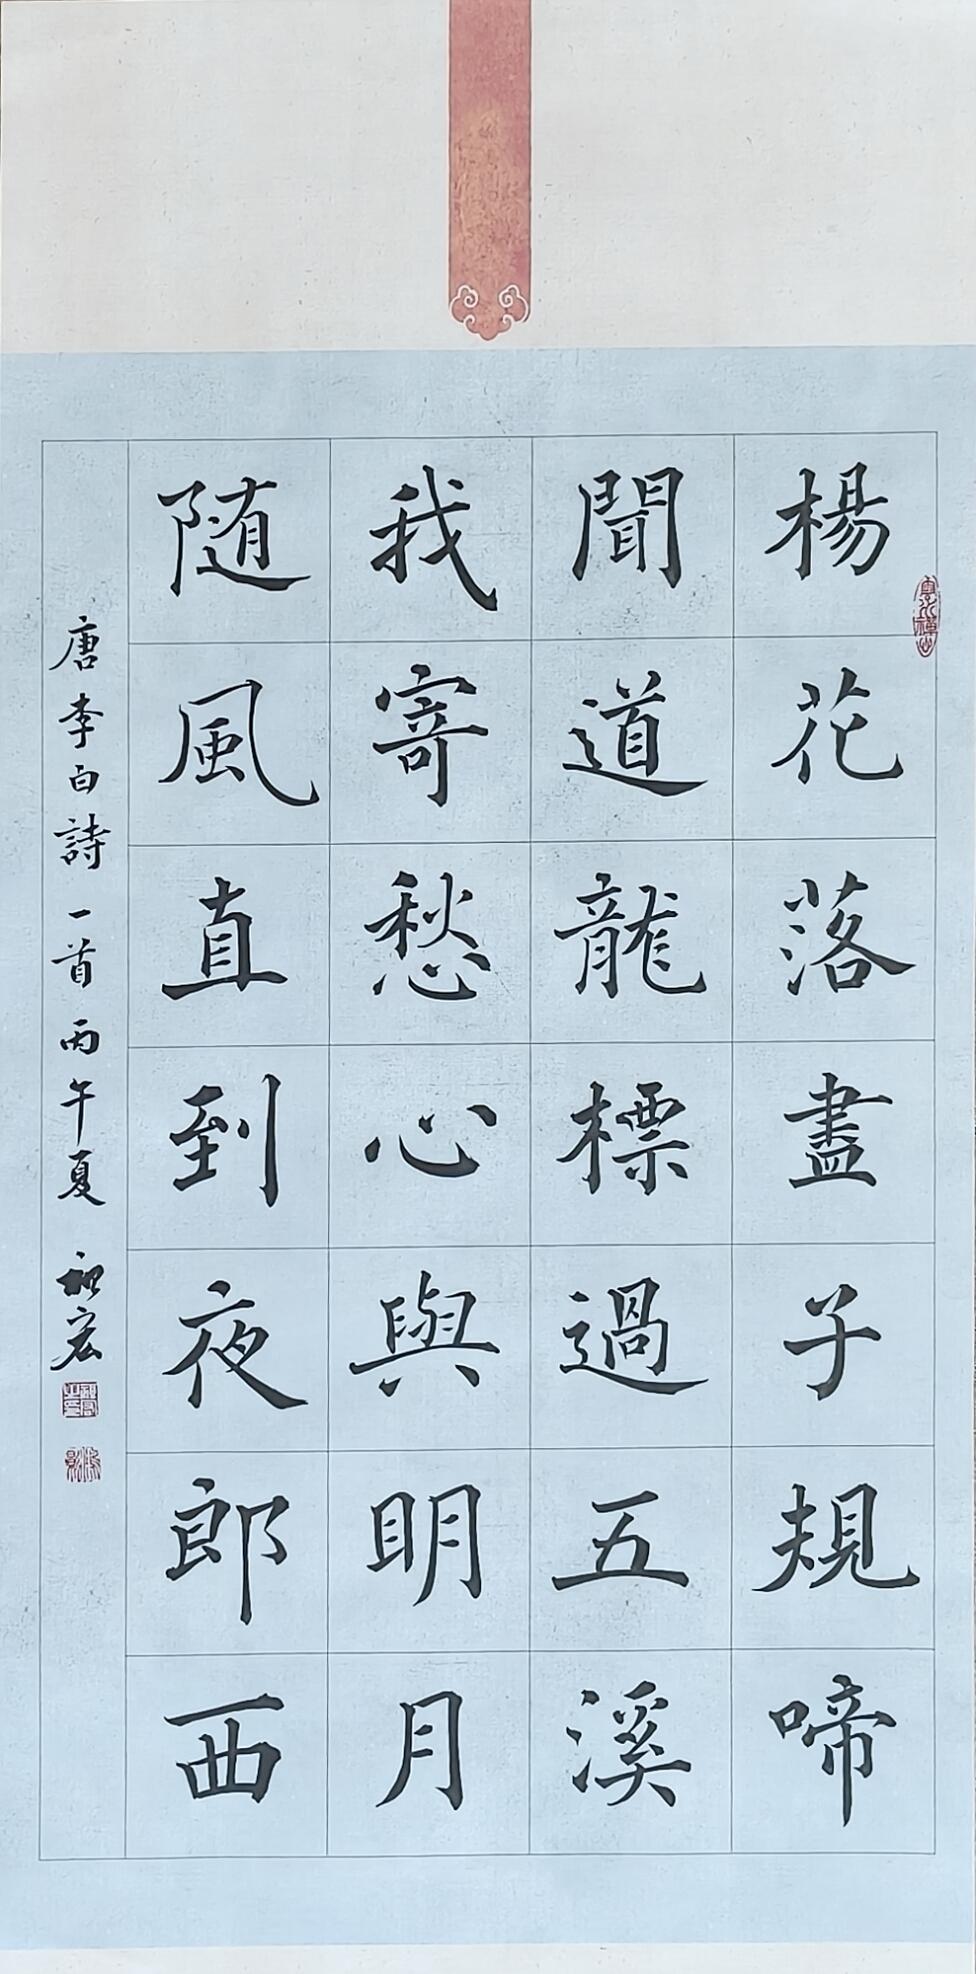 楊花落盡子規啼
聞道龍標過五溪
我寄愁心與明月
随風直到夜郎西
唐李白詩一首丙午夏